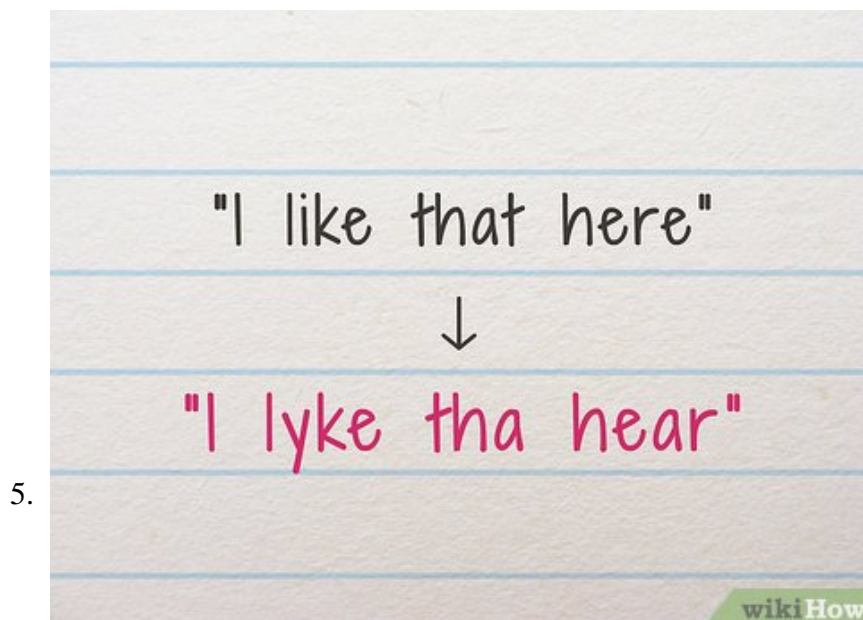 "I like that here"
↓
"I lyke tha hear"
5.
wikiHow